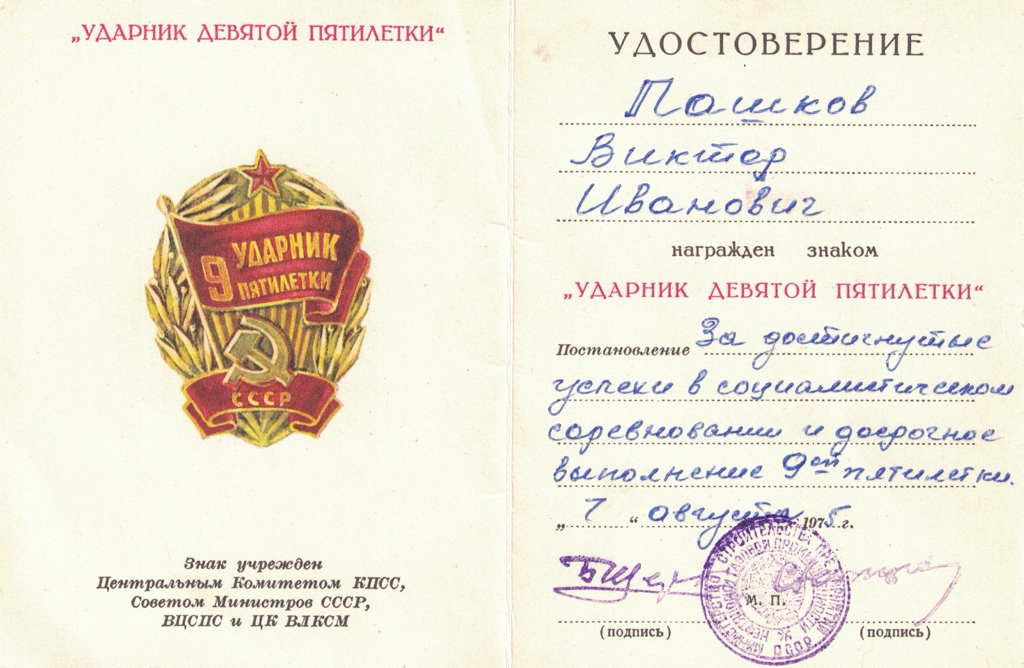 „УДАРНИК ДЕВЯТОЙ ПЯТИЛЕТКИ“
9 УДАРНИК
ПЯТИЛЕТКИ
СССР
Знак учрежден
Центральным Комитетом КПСС,
Советом Министров СССР,
ВЦСПС и ЦК ВЛКСМ
УДОСТОВЕРЕНИЕ
Пашков
Виктор
Иванович
награжден знаком
„УДАРНИК ДЕВЯТОЙ ПЯТИЛЕТКИ“
Постановление За достигнутые
успехи в социалистическом
соревновании и досрочное
выполнение 9ой пятилетки.
„ 7 “ августа 1975 г.
М. П.
(подпись) (подпись)